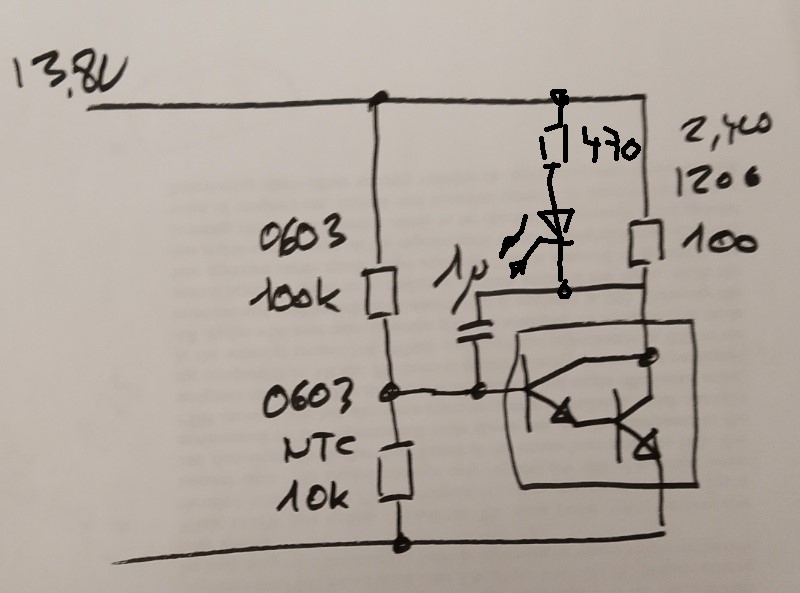 13,8V
470
2,4W
1206
100
0603
100k
1µ
0603
NTC
10k